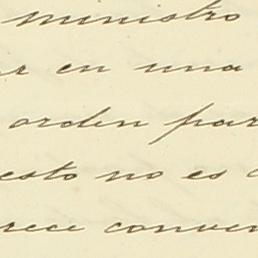 ministro
en una
orden par
esto no es
rece conven